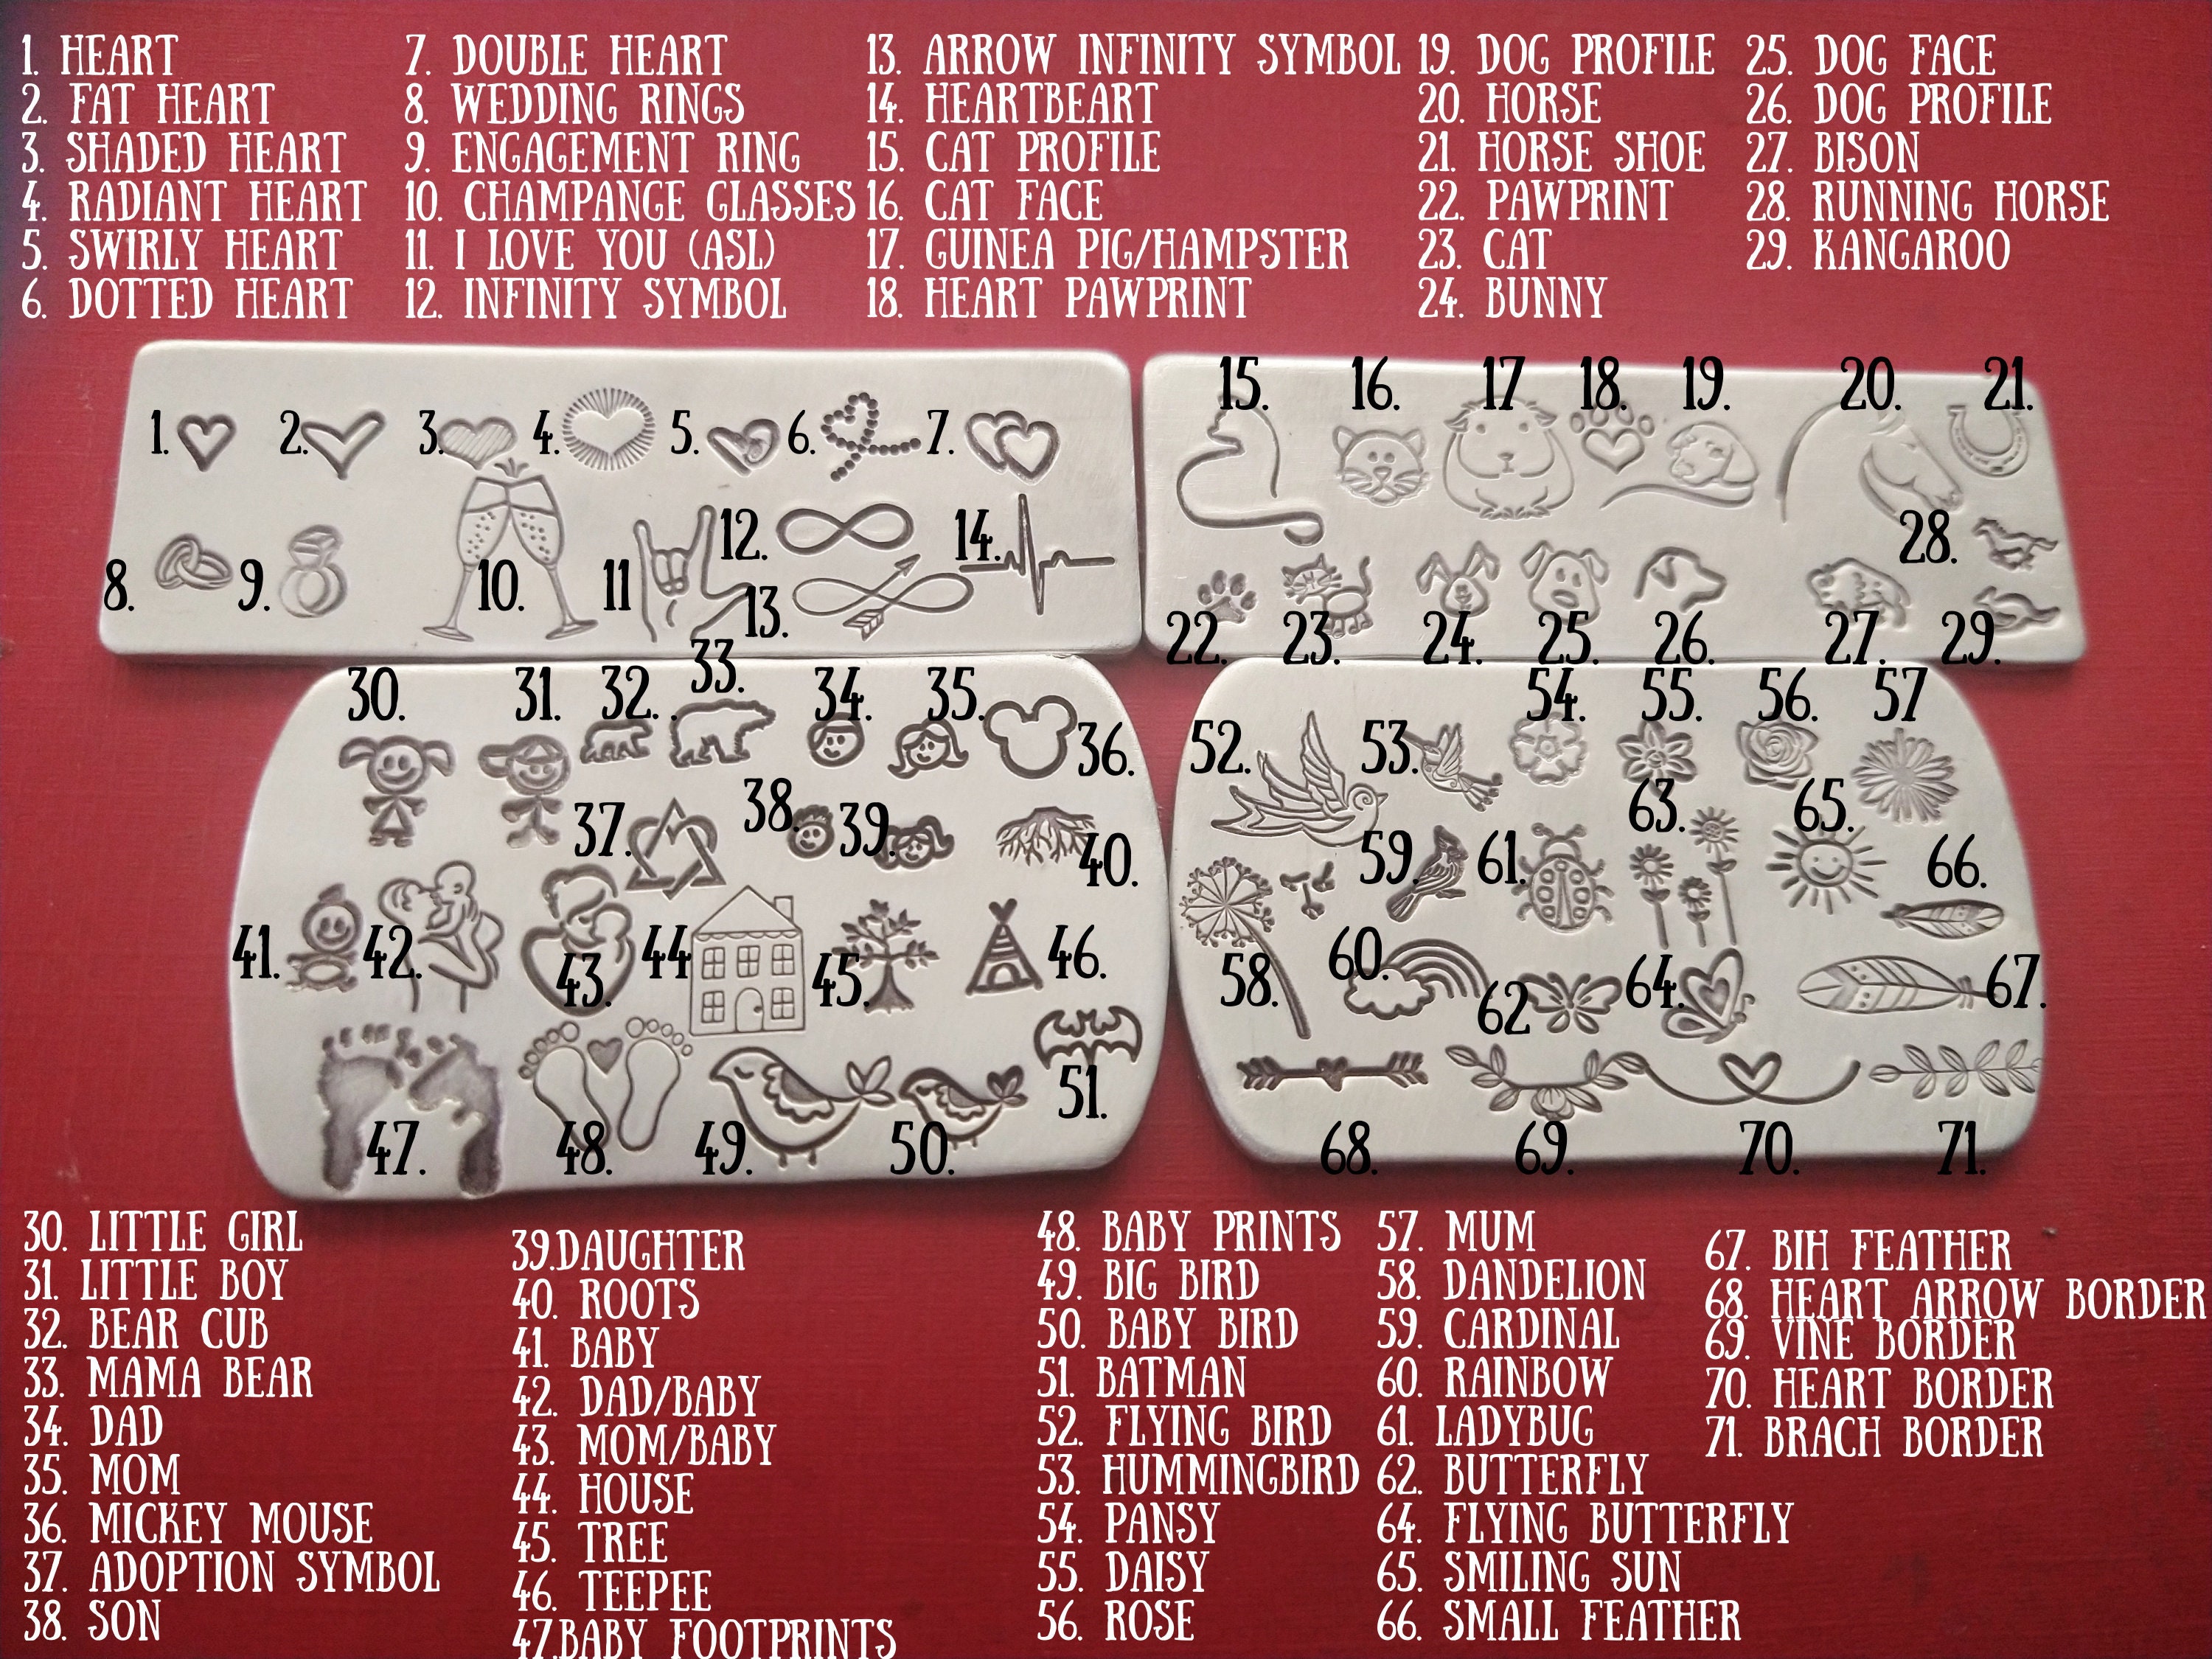 1. HEART
2. FAT HEART
3. SHADED HEART
4. RADIANT HEART
5. SWIRLY HEART
6. DOTTED HEART
7. DOUBLE HEART
8. WEDDING RINGS
9. ENGAGEMENT RING
10. CHAMPANGE GLASSES
11. I LOVE YOU (ASL)
12. INFINITY SYMBOL
13. ARROW INFINITY SYMBOL
14. HEARTBEART
15. CAT PROFILE
16. CAT FACE
17. GUINEA PIG/HAMPSTER
18. HEART PAWPRINT
19. DOG PROFILE
20. HORSE
21. HORSE SHOE
22. PAWPRINT
23. CAT
24. BUNNY
25. DOG FACE
26. DOG PROFILE
27. BISON
28. RUNNING HORSE
29. KANGAROO
1.
2.
3.
4.
5.
6.
7.
8.
9.
10.
11
12.
13.
14.
15.
16.
17
18.
19.
20.
21.
22.
23.
24.
25.
26.
27.
28.
29.
30.
31.
32.
33.
34.
35.
36.
37.
38.
39.
40.
41.
42.
43.
44
45.
46.
47.
48.
49.
50.
51.
52.
53.
54.
55.
56.
57
58.
59.
60.
61.
62
63.
64.
65.
66.
67.
68.
69.
70.
71.
30. LITTLE GIRL
31. LITTLE BOY
32. BEAR CUB
33. MAMA BEAR
34. DAD
35. MOM
36. MICKEY MOUSE
37. ADOPTION SYMBOL
38. SON
39.DAUGHTER
40. ROOTS
41. BABY
42. DAD/BABY
43. MOM/BABY
44. HOUSE
45. TREE
46. TEEPEE
47.BABY FOOTPRINTS
48. BABY PRINTS
49. BIG BIRD
50. BABY BIRD
51. BATMAN
52. FLYING BIRD
53. HUMMINGBIRD
54. PANSY
55. DAISY
56. ROSE
57. MUM
58. DANDELION
59. CARDINAL
60. RAINBOW
61. LADYBUG
62. BUTTERFLY
64. FLYING BUTTERFLY
65. SMILING SUN
66. SMALL FEATHER
67. BIH FEATHER
68. HEART ARROW BORDER
69. VINE BORDER
70. HEART BORDER
71. BRACH BORDER